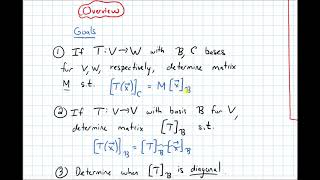 Overview
Goals
① If T: V→W with B, C bases
for V, W, respectively, determine matrix
M s.t. [T(x⃗)]_C = M [x⃗]_B
② If T: V→V with basis B for V,
determine matrix [T]_B s.t.
[T(x⃗)]_B = [T]_B [x⃗]_B
③ Determine when [T]_B is diagonal.